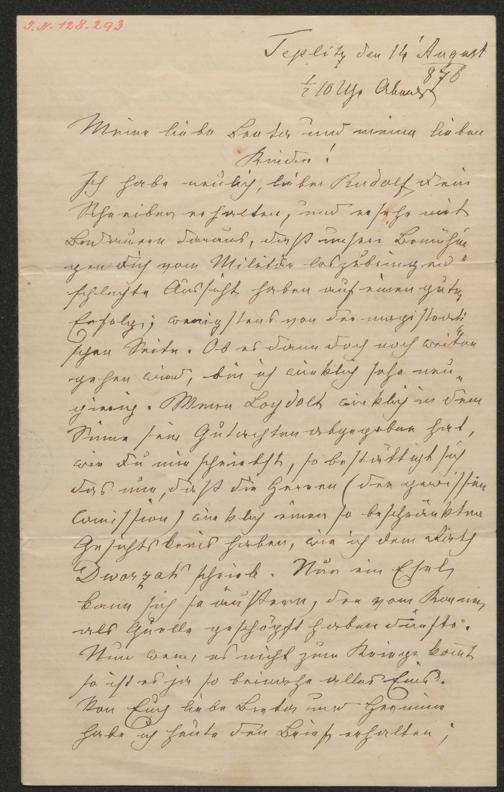 J.N. 128.293
Teplitz den 14 August
876
½ 10 Uhr Abends
Meine liebe Berta und meine lieben
Kinder!
Ich habe neulich, lieber Rudolf dein
Schreiben erhalten, und ersehe mit
Bedauern daraus, daß unsere Bemühun
gen dich vom Militär loszubringen
schlechte Aussicht haben auf einen guten
Erfolg; wenigstens von der magistrati
schen Seite. Ob es dann doch noch weiter
gehen wird, bin ich wirklich sehr neu„
gierig. Wenn Loydolt wirklich in dem
Sinne sein Gutachten abgegeben hat,
wie du mir schreibst, so bestättigt sich
das nur, daß die Herren (der gewissen
Comission) wirklich einen so beschränkten
Gesichtskreis haben, wie ich dem
Dworzak schrieb. Nur ein Esel
kann sich so äußern, der vom
als Quelle geschöpft haben dürfte.
Nun wenn es nicht zum Kriege kom̄t
so ist es ja so beinahe alles Eins.
Von Euch liebe Berta und Hermine
habe ich heute den Brief erhalten;